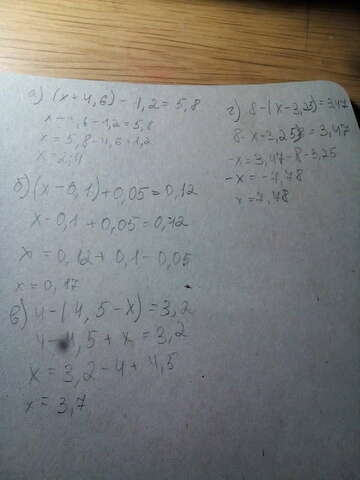 а) (x+4,6)-1,2=5,8
x+4,6-1,2=5,8
x=5,8-4,6+1,2
x=2,4
б) (x-0,1)+0,05=0,12
x-0,1+0,05=0,12
x=0,12+0,1-0,05
x=0,17
в) 4-(4,5-x)=3,2
4-4,5+x=3,2
x=3,2-4+4,5
x=3,7
г) 8-(x-3,25)=3,47
8-x+3,25=3,47
-x=3,47-8-3,25
-x=-7,78
x=7,78